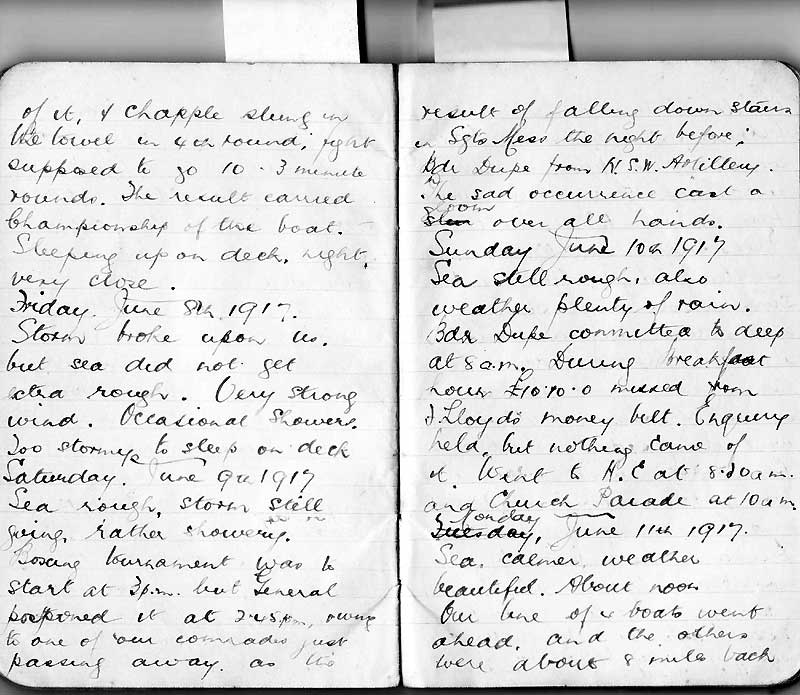 of it, & Chapple slung in
the towel in 4th round; fight
supposed to go 10 - 3 minute
rounds. The result carried
Championship of the boat.
Sleeping up on deck, night,
very close.
Friday. June 8th, 1917.
Storm broke upon us.
but sea did not get
extra rough. Very strong
wind. Occasional Showers.
Too stormy to sleep on deck
Saturday. June 9th 1917
Sea rough, storm still
going, rather showery.
Boxing tournament was to
start at 3p.m. but General
postponed it at 2-45pm, owing
to one of our comrades just
passing away. as the
result of falling down stairs
in Sgts Mess the night before;
Bdr Dupe from N.S.W. Artillery.
The sad occurrence cast a
gloom over all hands.
Sunday June 10th 1917
Sea still rough, also
weather plenty of rain.
Bdr Dupe committed to deep
at 8 a.m. During breakfast
hour £10.10.0 missed from
J. Lloyd's money belt. Enquiry
held, but nothing came of
it. Went to H.C at 8.30am.
and Church Parade at 10am.
Monday, June 11th 1917.
Sea, calmer, weather
beautiful. About noon
Our line of 4 boats went
ahead, and the others
were about 8 miles back